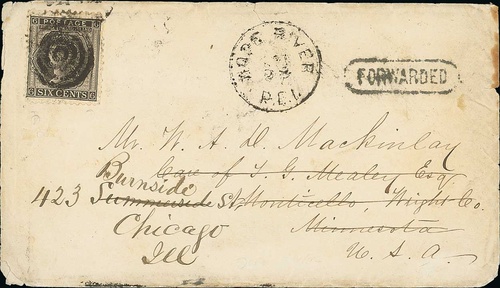 POSTAGE
6 SIX CENTS 6
HOPE RIVER
P.E.I.
FORWARDED
Mr. W. A. D. Mackinlay
Care of T. G. Mealey Esq
Burnside
423 Summerside St. Monticello, Wright Co.
Chicago Minnesota
Ill U. S. A.